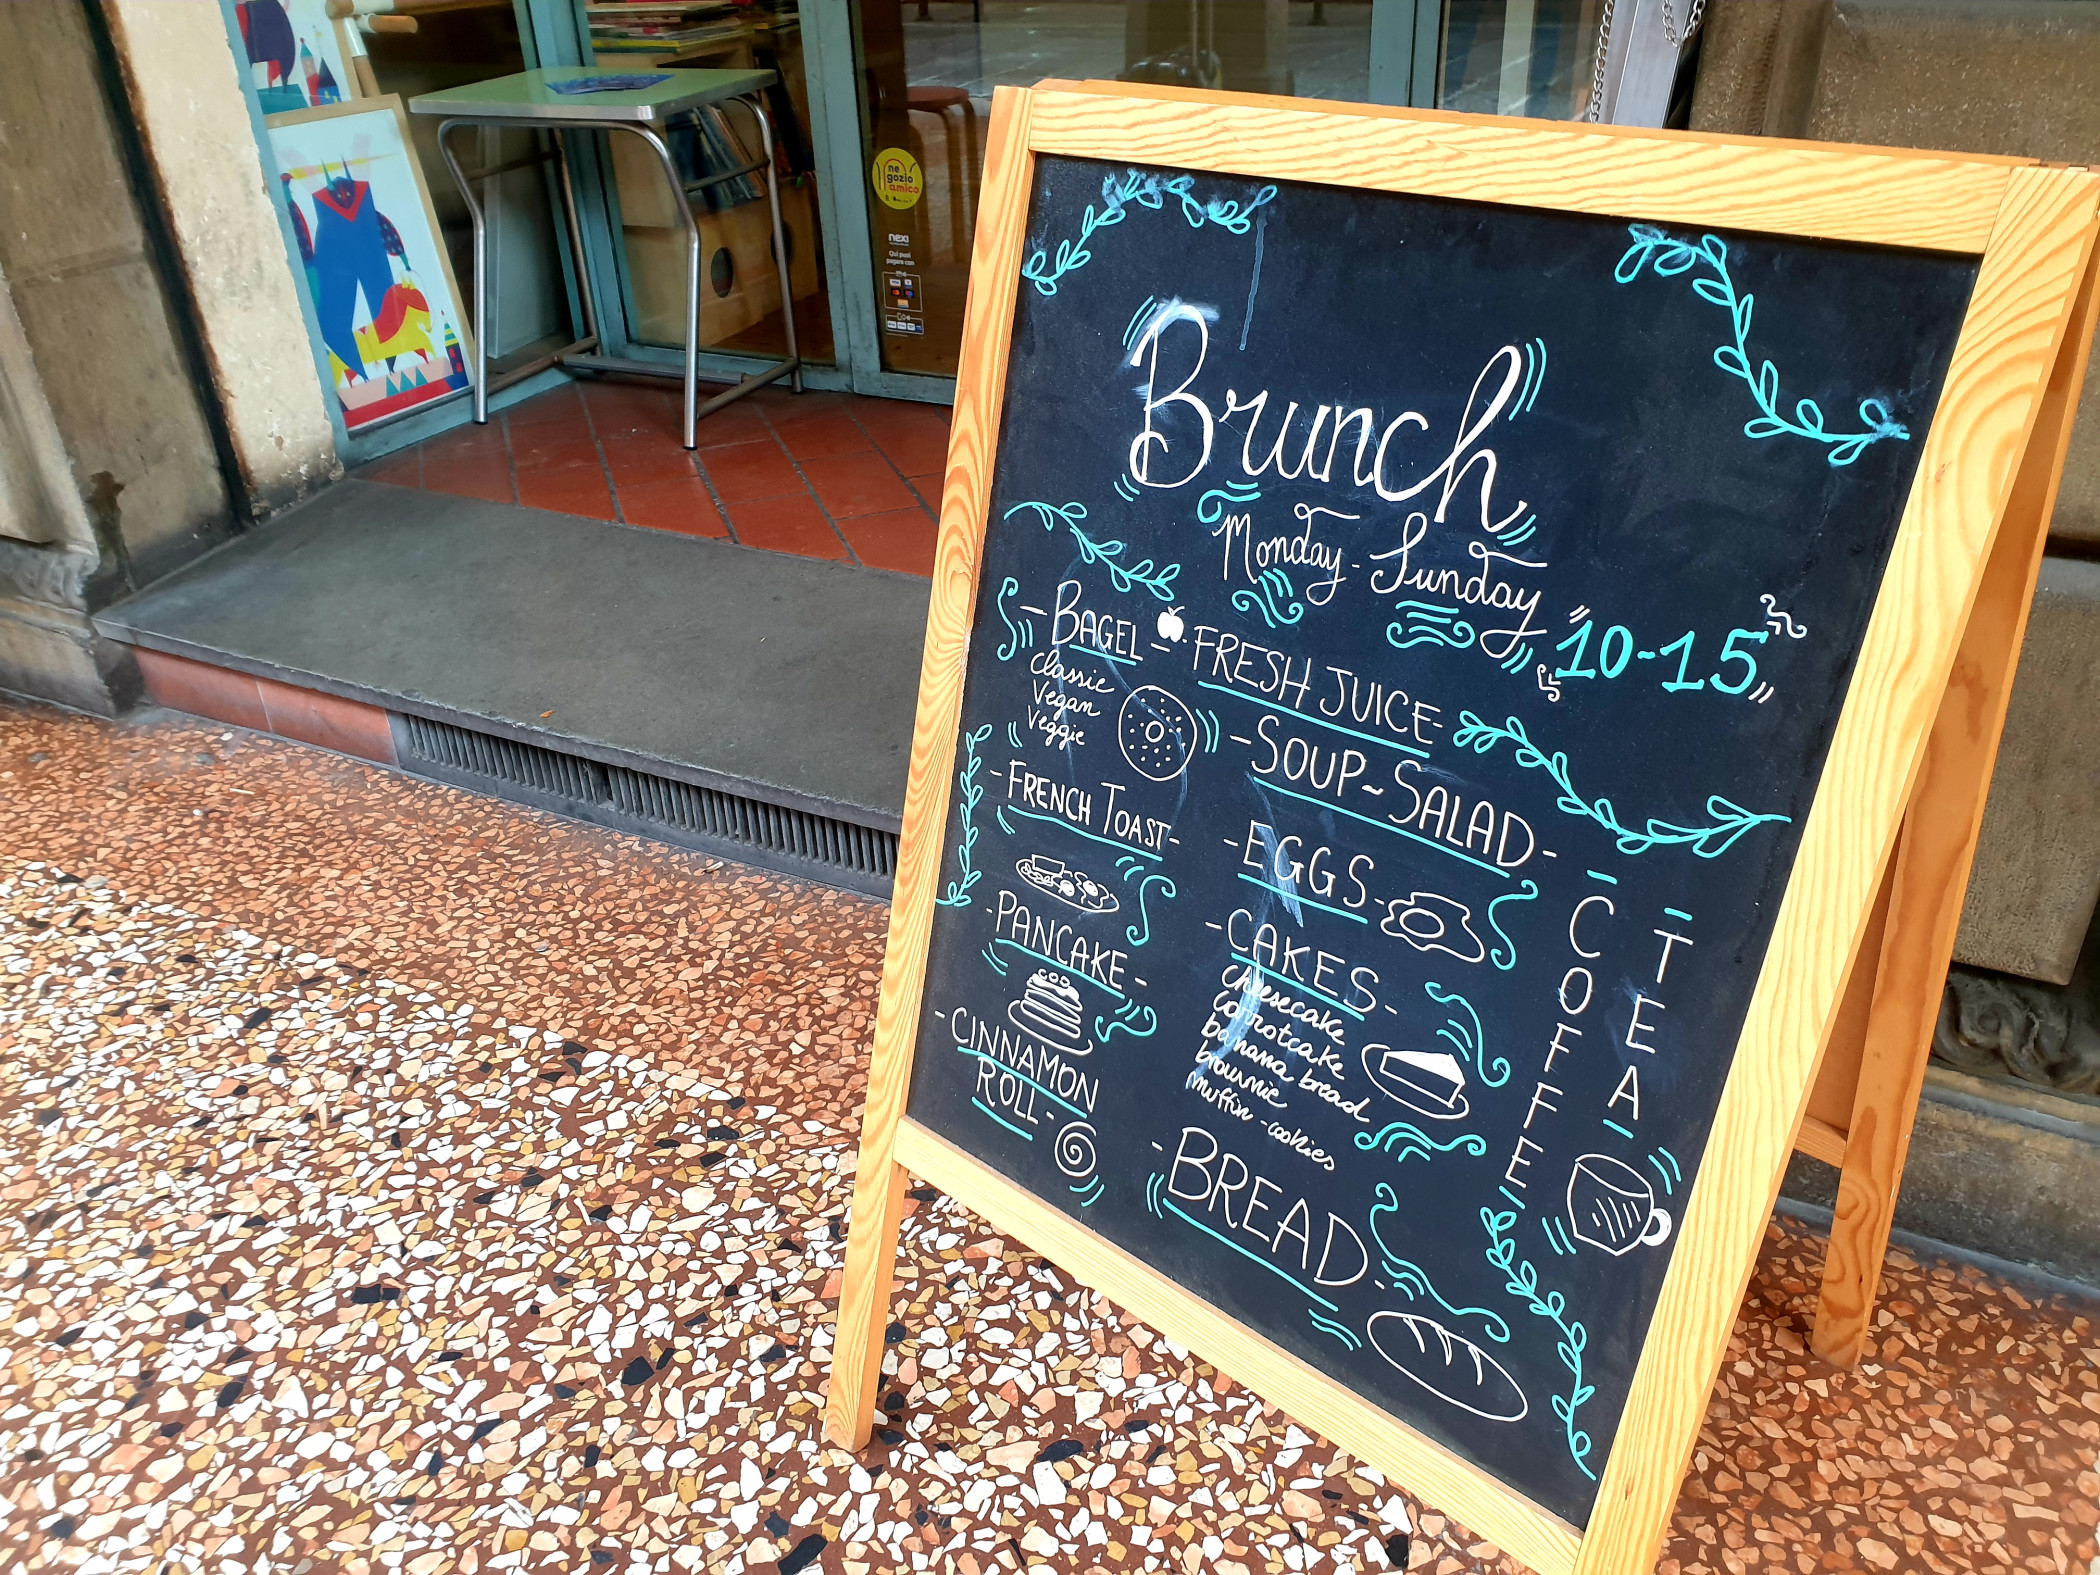 ne
gozio
amico
nexi
Qui puoi
pagare con
Brunch
Monday - Sunday
10-15
- BAGEL -
classic
Vegan
Veggie
- FRENCH TOAST -
- PANCAKE -
- CINNAMON
ROLL -
- FRESH JUICE -
- SOUP ~ SALAD -
- EGGS -
- CAKES -
cheesecake
carrotcake
banana bread
brownie
muffin - cookies
- BREAD -
- COFFE -
- TEA -